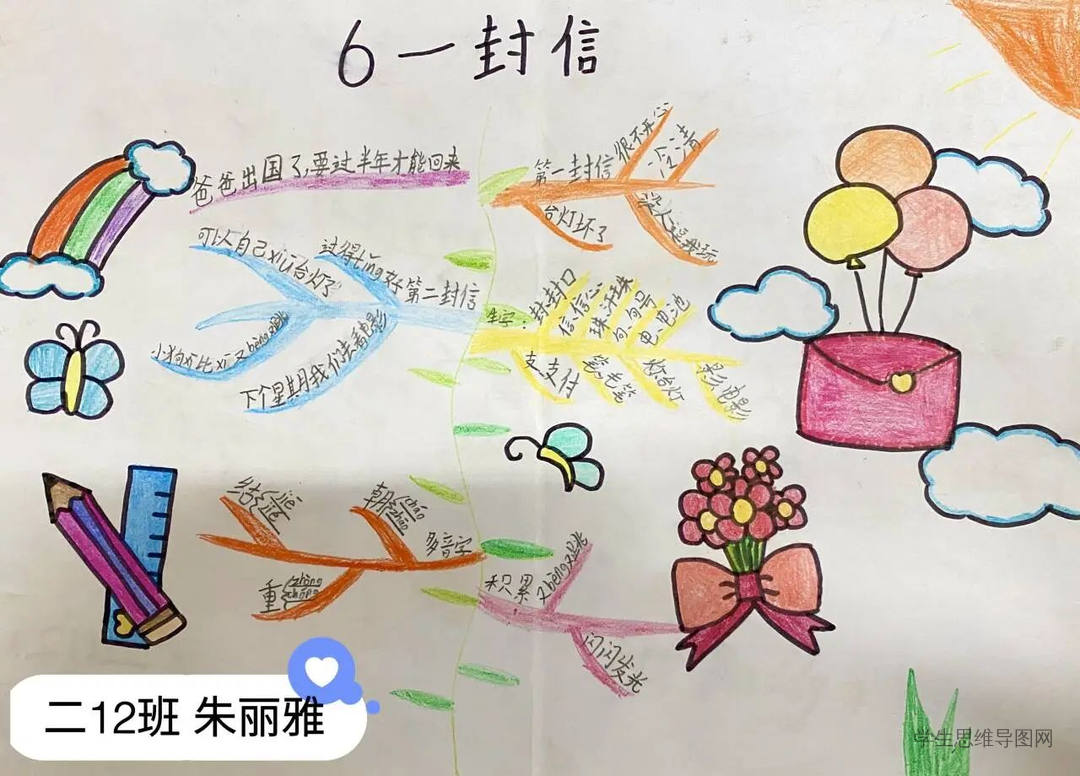 6 一封信
爸爸出国了,要过半年才能回来
第一封信
很不开心
冷清
台灯坏了
没人逗我玩
第二封信
过得tǐng好
可以自己xiū台灯了
下个星期我们去看电影
生字:
封:封口
信:信心
珠:汗珠
句:句号
电:电池
支:支付
笔:毛笔
灯:台灯
影:电影
多音字
朝
cháo
zhāo
结
jiē
jié
重
zhòng
chóng
积累
闪闪发光
二12班 朱丽雅
学生思维导图网